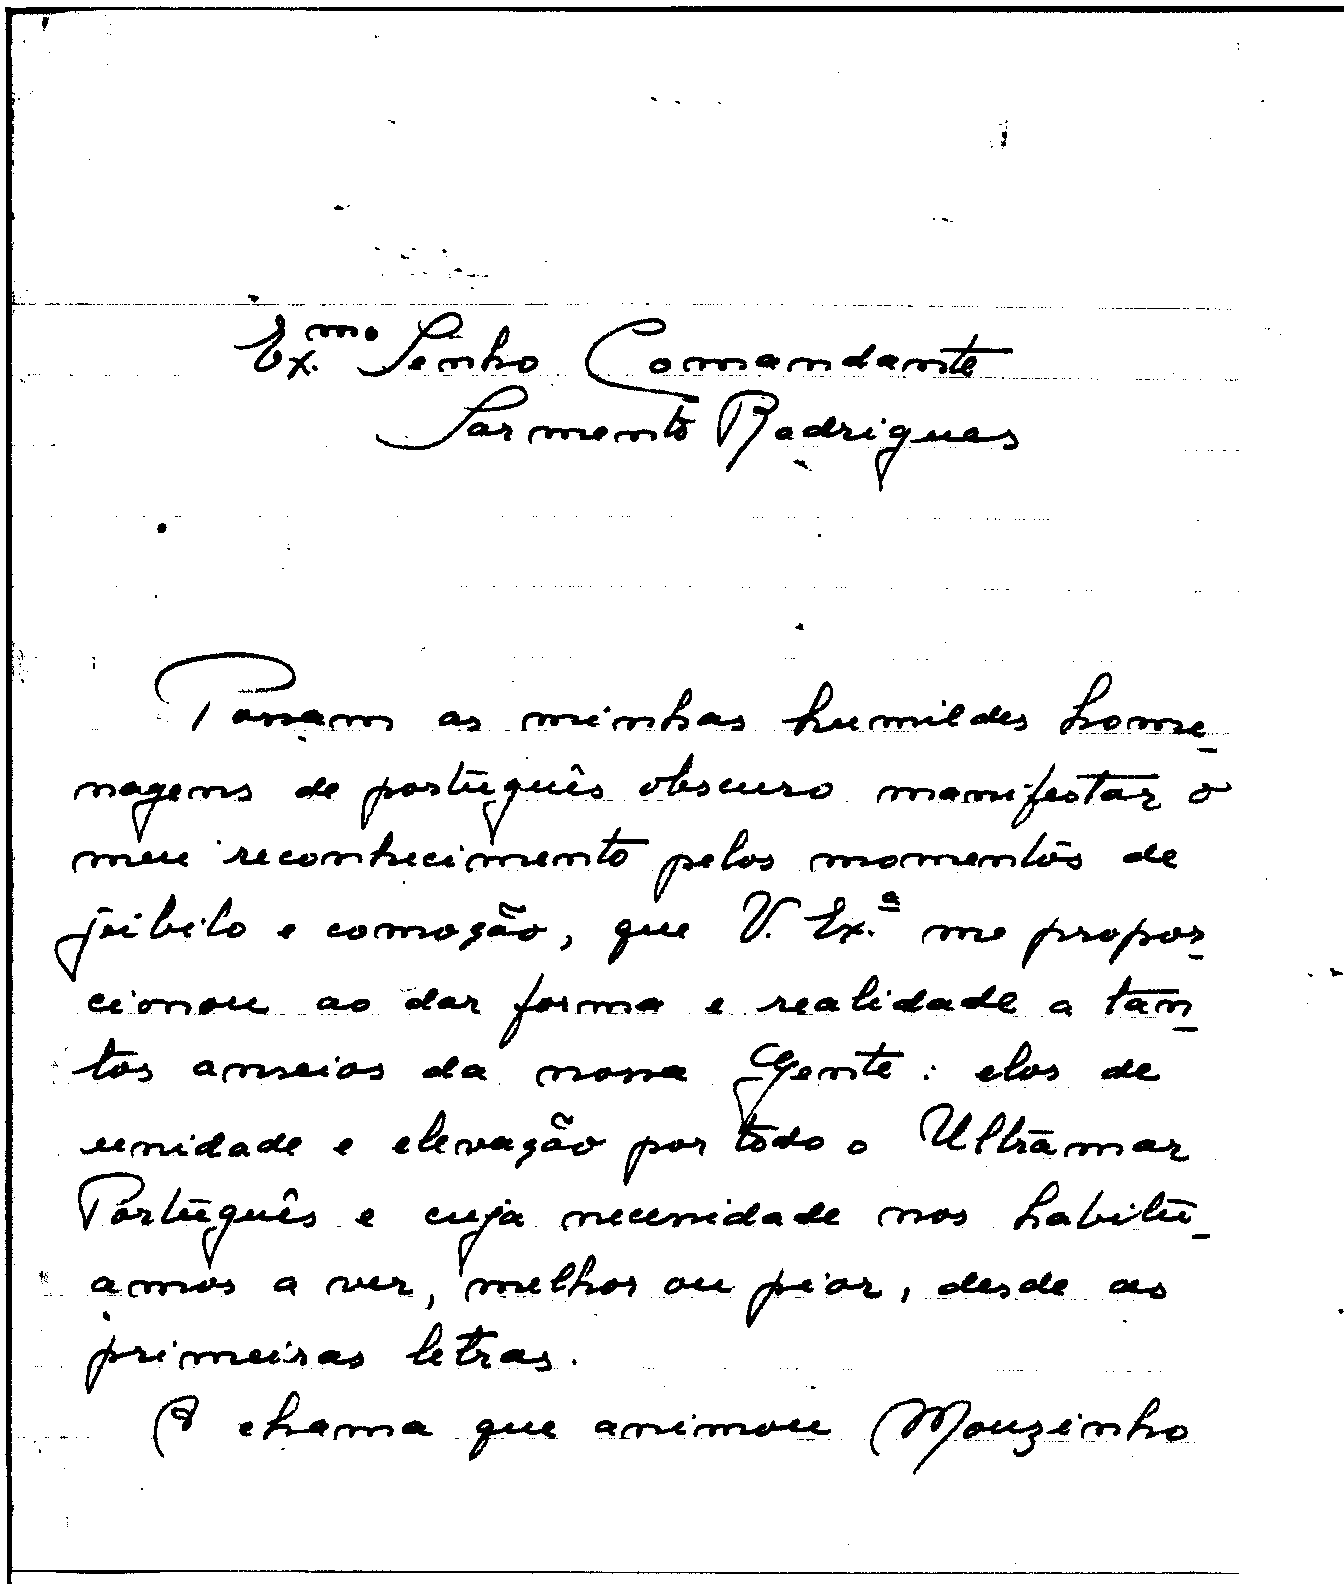 Ex.mo Senho Comandante
Sarmento Rodrigues
Possam as minhas humildes home-
nagens de português obscuro manifestar o
meu reconhecimento pelos momentos de
júbilo e comoção, que V. Ex.ª me propor-
cionou ao dar forma e realidade a tan-
tos anseios da nossa Gente: elos de
unidade e elevação por todo o Ultramar
Português e cuja necessidade nos habitu-
amos a ver, melhor ou pior, desde as
primeiras letras.
A chama que animou Mouzinho